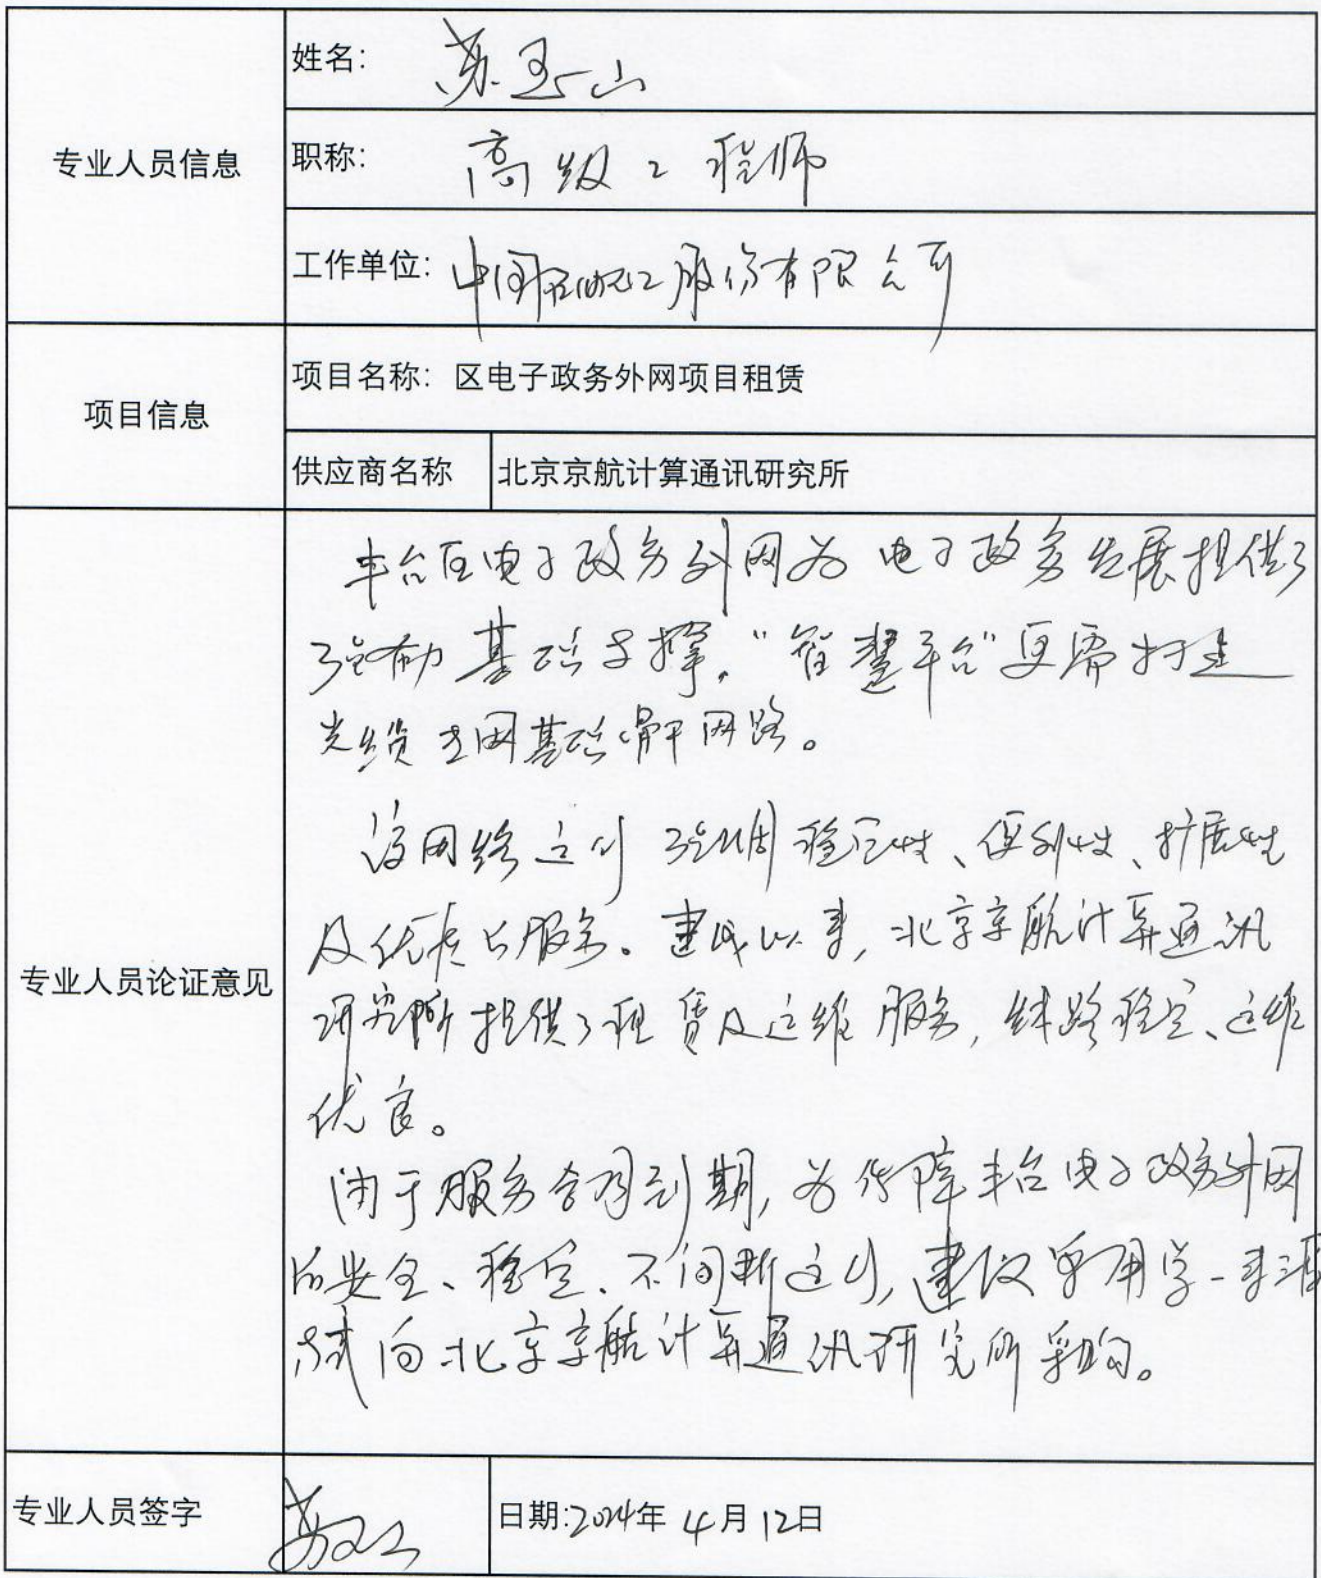 专业人员信息
姓名： 苏玉山
职称： 高级工程师
工作单位： 中国 股份有限公司
项目信息
项目名称：区电子政务外网项目租赁
供应商名称 北京京航计算通讯研究所
专业人员论证意见
丰台区电子政务外网为电子政务发展提供了
强劲基础支撑。“智慧丰台”更需打造
光缆 网基础骨干网路。
该网络运行强调稳定性、便利性、扩展性
及优质的服务。建成以来，北京京航计算通讯
研究所提供了租赁及运维服务，线路稳定、运维
优良。
由于服务合同到期，为保障丰台电子政务外网
的安全、稳定、不间断运行，建议采用单一来源
方式向北京京航计算通讯研究所采购。
专业人员签字
日期:2024年 4月12日